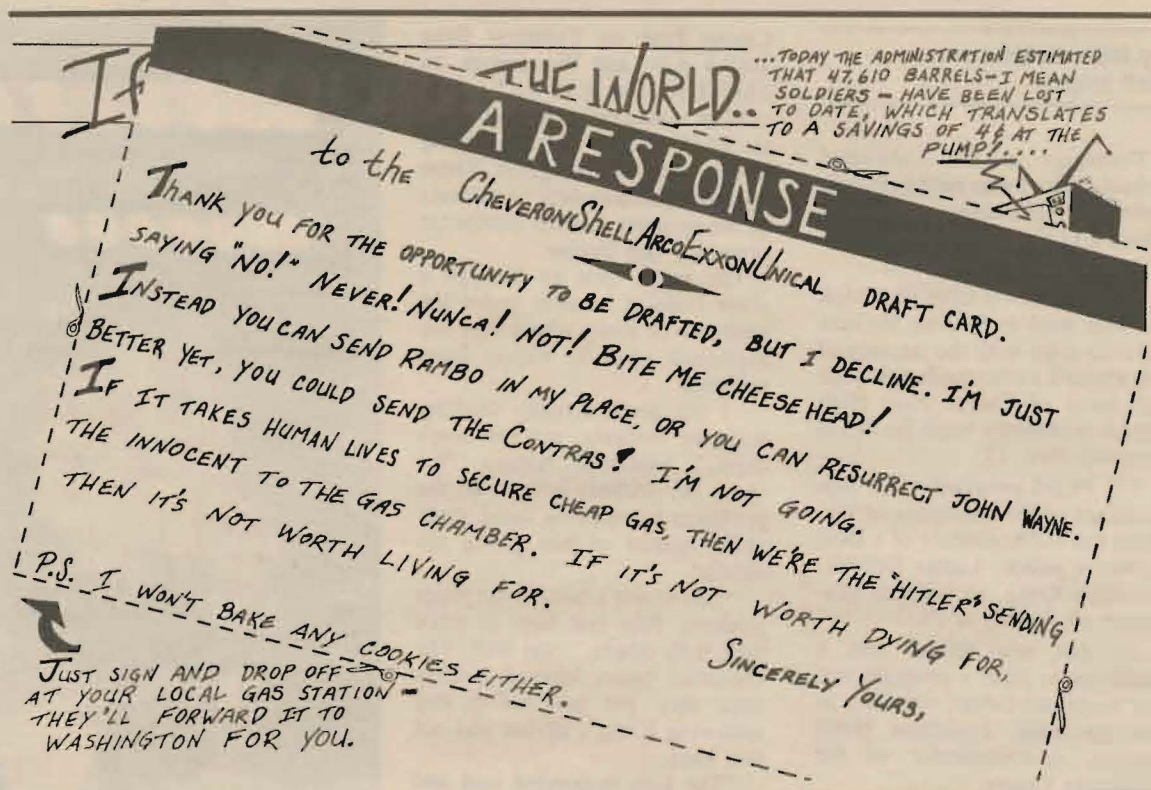 If
THE WORLD..
...TODAY THE ADMINISTRATION ESTIMATED
THAT 47,610 BARRELS-I MEAN
SOLDIERS - HAVE BEEN LOST
TO DATE, WHICH TRANSLATES
TO A SAVINGS OF 4¢ AT THE
PUMP!....
A RESPONSE
to the CHEVERONSHELLARCOEXXONUNICAL DRAFT CARD.
THANK YOU FOR THE OPPORTUNITY TO BE DRAFTED, BUT I DECLINE. I'M JUST
SAYING "NO!" NEVER! NUNCA! NOT! BITE ME CHEESE HEAD!
INSTEAD YOU CAN SEND RAMBO IN MY PLACE, OR YOU CAN RESURRECT JOHN WAYNE.
BETTER YET, YOU COULD SEND THE CONTRAS! I'M NOT GOING.
IF IT TAKES HUMAN LIVES TO SECURE CHEAP GAS, THEN WE'RE THE "HITLER" SENDING
THE INNOCENT TO THE GAS CHAMBER. IF IT'S NOT WORTH DYING FOR,
THEN IT'S NOT WORTH LIVING FOR.
SINCERELY YOURS,
P.S. I WON'T BAKE ANY COOKIES EITHER.
JUST SIGN AND DROP OFF
AT YOUR LOCAL GAS STATION -
THEY'LL FORWARD IT TO
WASHINGTON FOR YOU.